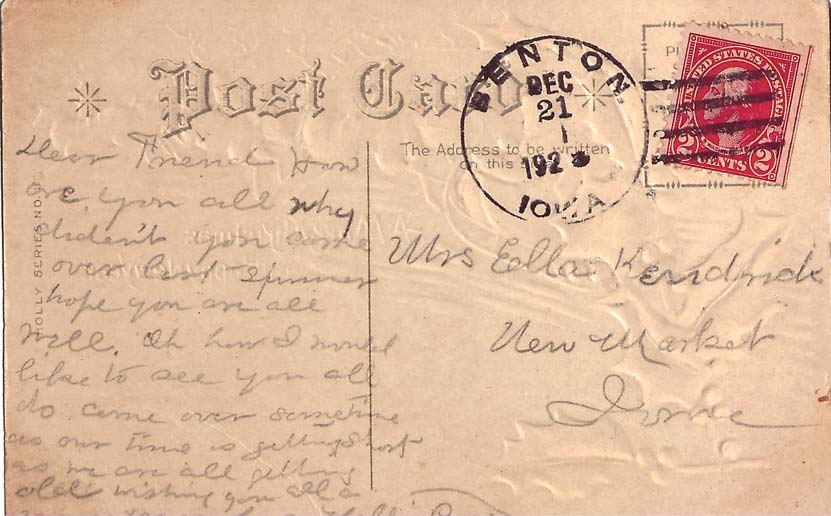 Post Card
BENTON
DEC
21
1
192
IOWA
UNITED STATES POSTAGE
2 CENTS 2
The Address to be written
on this
HOLLY SERIES NO.
Dear Friend how
are you all why
diden't you come
over last summer
hope you are all
well. Oh how I would
like to see you all
do come over sometime
as our time is getting short
as we are all getting
old wishing you all a
Mrs Ella Kendrick
New Market